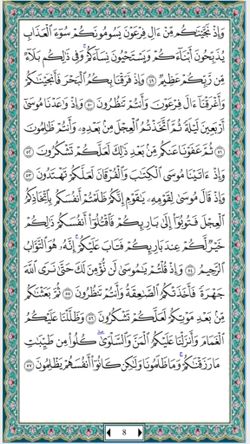 وَإِذْ نَجَّيْنَٰكُم مِّنْ ءَالِ فِرْعَوْنَ يَسُومُونَكُمْ سُوٓءَ ٱلْعَذَابِ
يُذَبِّحُونَ أَبْنَآءَكُمْ وَيَسْتَحْيُونَ نِسَآءَكُمْ ۚ وَفِى ذَٰلِكُم بَلَآءٌ
مِّن رَّبِّكُمْ عَظِيمٌ ٤٩ وَإِذْ فَرَقْنَا بِكُمُ ٱلْبَحْرَ فَأَنجَيْنَٰكُمْ
وَأَغْرَقْنَآ ءَالَ فِرْعَوْنَ وَأَنتُمْ تَنظُرُونَ ٥٠ وَإِذْ وَٰعَدْنَا مُوسَىٰٓ
أَرْبَعِينَ لَيْلَةً ثُمَّ ٱتَّخَذْتُمُ ٱلْعِجْلَ مِنۢ بَعْدِهِۦ وَأَنتُمْ ظَٰلِمُونَ
٥١ ثُمَّ عَفَوْنَا عَنكُم مِّنۢ بَعْدِ ذَٰلِكَ لَعَلَّكُمْ تَشْكُرُونَ ٥٢
وَإِذْ ءَاتَيْنَا مُوسَى ٱلْكِتَٰبَ وَٱلْفُرْقَانَ لَعَلَّكُمْ تَهْتَدُونَ ٥٣
وَإِذْ قَالَ مُوسَىٰ لِقَوْمِهِۦ يَٰقَوْمِ إِنَّكُمْ ظَلَمْتُمْ أَنفُسَكُم بِٱتِّخَاذِكُمُ
ٱلْعِجْلَ فَتُوبُوٓا۟ إِلَىٰ بَارِئِكُمْ فَٱقْتُلُوٓا۟ أَنفُسَكُمْ ذَٰلِكُمْ
خَيْرٌ لَّكُمْ عِندَ بَارِئِكُمْ فَتَابَ عَلَيْكُمْ ۚ إِنَّهُۥ هُوَ ٱلتَّوَّابُ
ٱلرَّحِيمُ ٥٤ وَإِذْ قُلْتُمْ يَٰمُوسَىٰ لَن نُّؤْمِنَ لَكَ حَتَّىٰ نَرَى ٱللَّهَ
جَهْرَةً فَأَخَذَتْكُمُ ٱلصَّٰعِقَةُ وَأَنتُمْ تَنظُرُونَ ٥٥ ثُمَّ بَعَثْنَٰكُم
مِّنۢ بَعْدِ مَوْتِكُمْ لَعَلَّكُمْ تَشْكُرُونَ ٥٦ وَظَلَّلْنَا عَلَيْكُمُ
ٱلْغَمَامَ وَأَنزَلْنَا عَلَيْكُمُ ٱلْمَنَّ وَٱلسَّلْوَىٰ ۖ كُلُوا۟ مِن طَيِّبَٰتِ
مَا رَزَقْنَٰكُمْ ۖ وَمَا ظَلَمُونَا وَلَٰكِن كَانُوٓا۟ أَنفُسَهُمْ يَظْلِمُونَ ٥٧
8